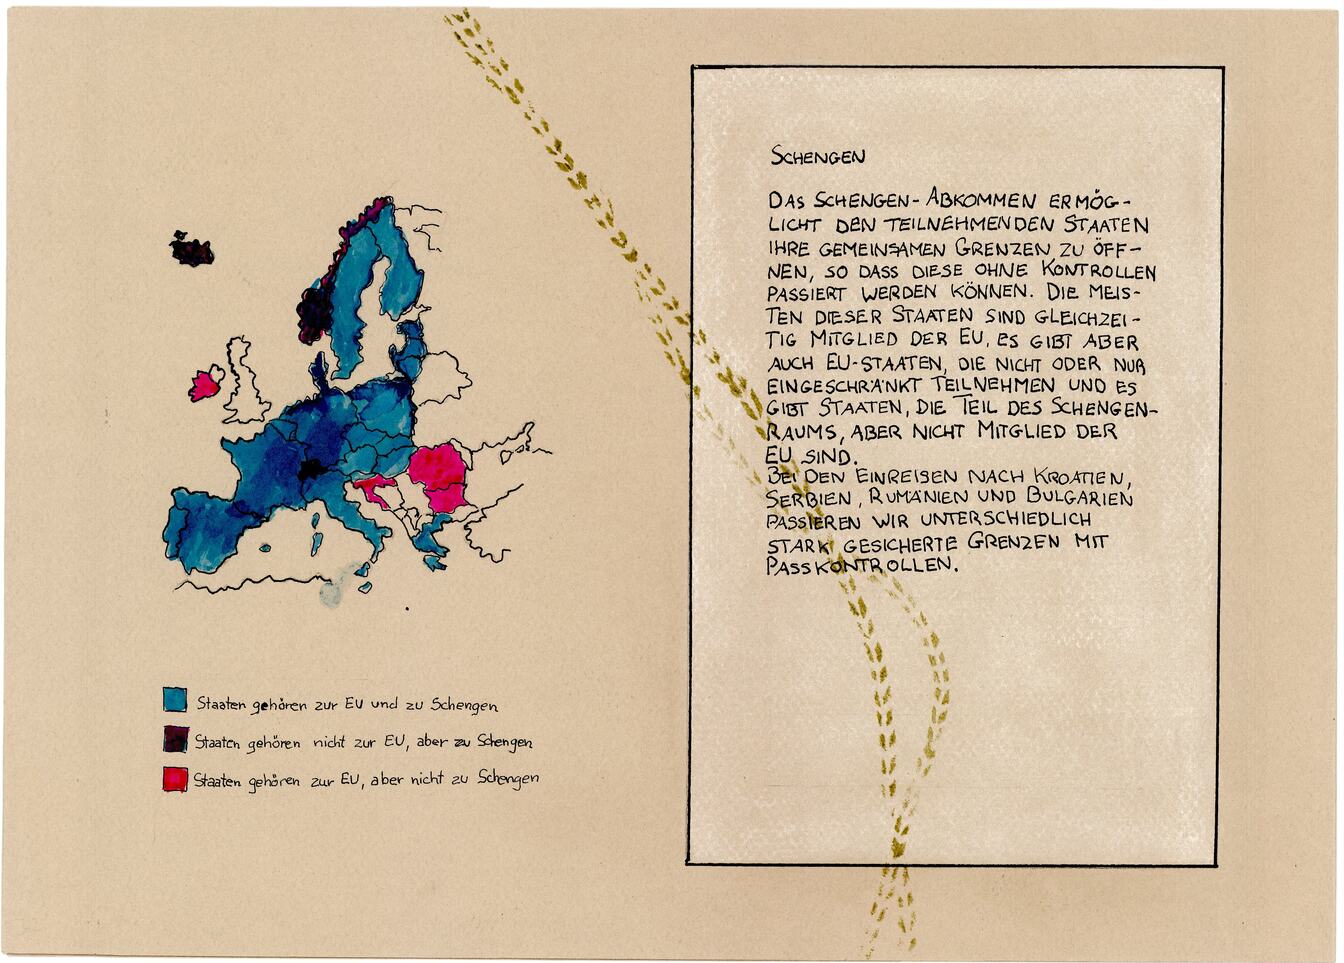 Schengen
Das Schengen-Abkommen ermög-
licht den teilnehmenden Staaten
ihre gemeinsamen Grenzen zu öff-
nen, so dass diese ohne Kontrollen
passiert werden können. Die meis-
ten dieser Staaten sind gleichzei-
tig Mitglied der EU, es gibt aber
auch EU-Staaten, die nicht oder nur
eingeschränkt teilnehmen und es
gibt Staaten, die Teil des Schengen-
raums, aber nicht Mitglied der
EU sind.
Bei den Einreisen nach Kroatien,
Serbien, Rumänien und Bulgarien
passieren wir unterschiedlich
stark gesicherte Grenzen mit
Passkontrollen.
Staaten gehören zur EU und zu Schengen
Staaten gehören nicht zur EU, aber zu Schengen
Staaten gehören zur EU, aber nicht zu Schengen